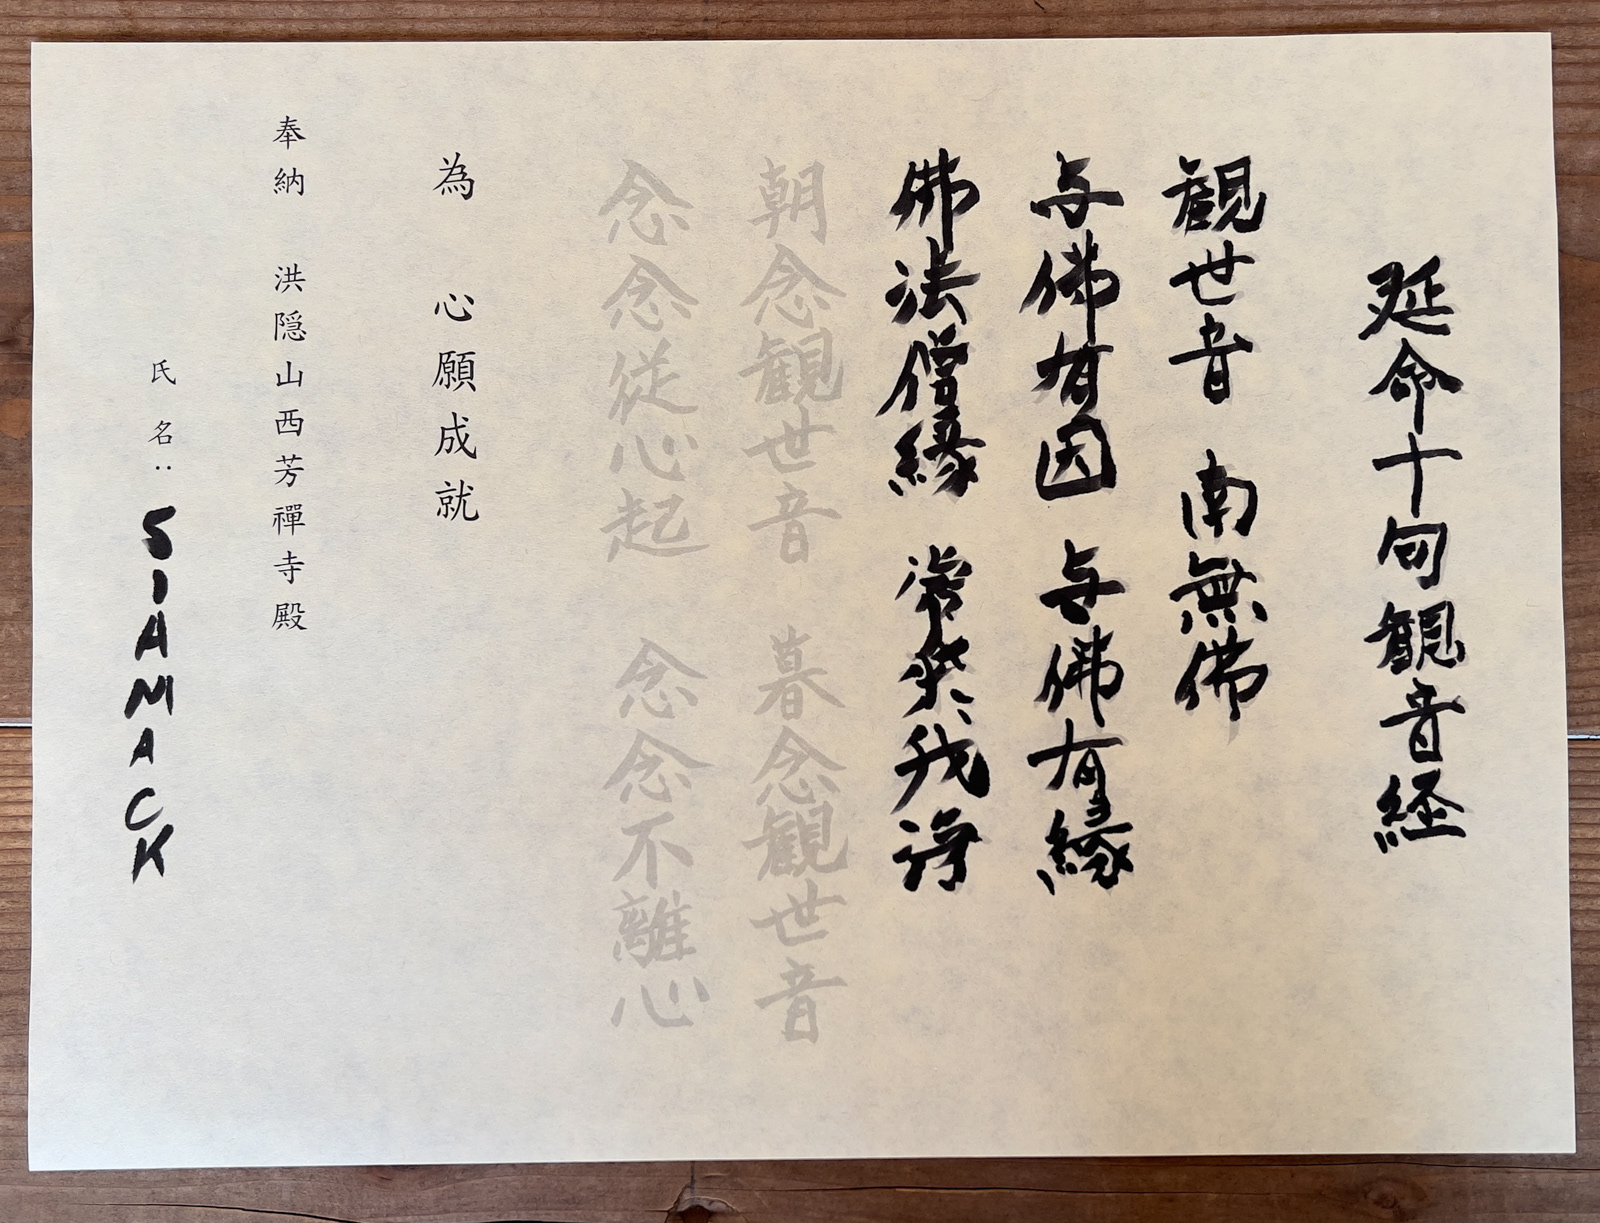 延命十句観音経
観世音 南無佛
与佛有因 与佛有縁
佛法僧縁 常楽我浄
朝念観世音 暮念観世音
念念従心起 念念不離心
為 心願成就
奉納 洪隠山西芳禪寺殿
氏名: SIAMACK